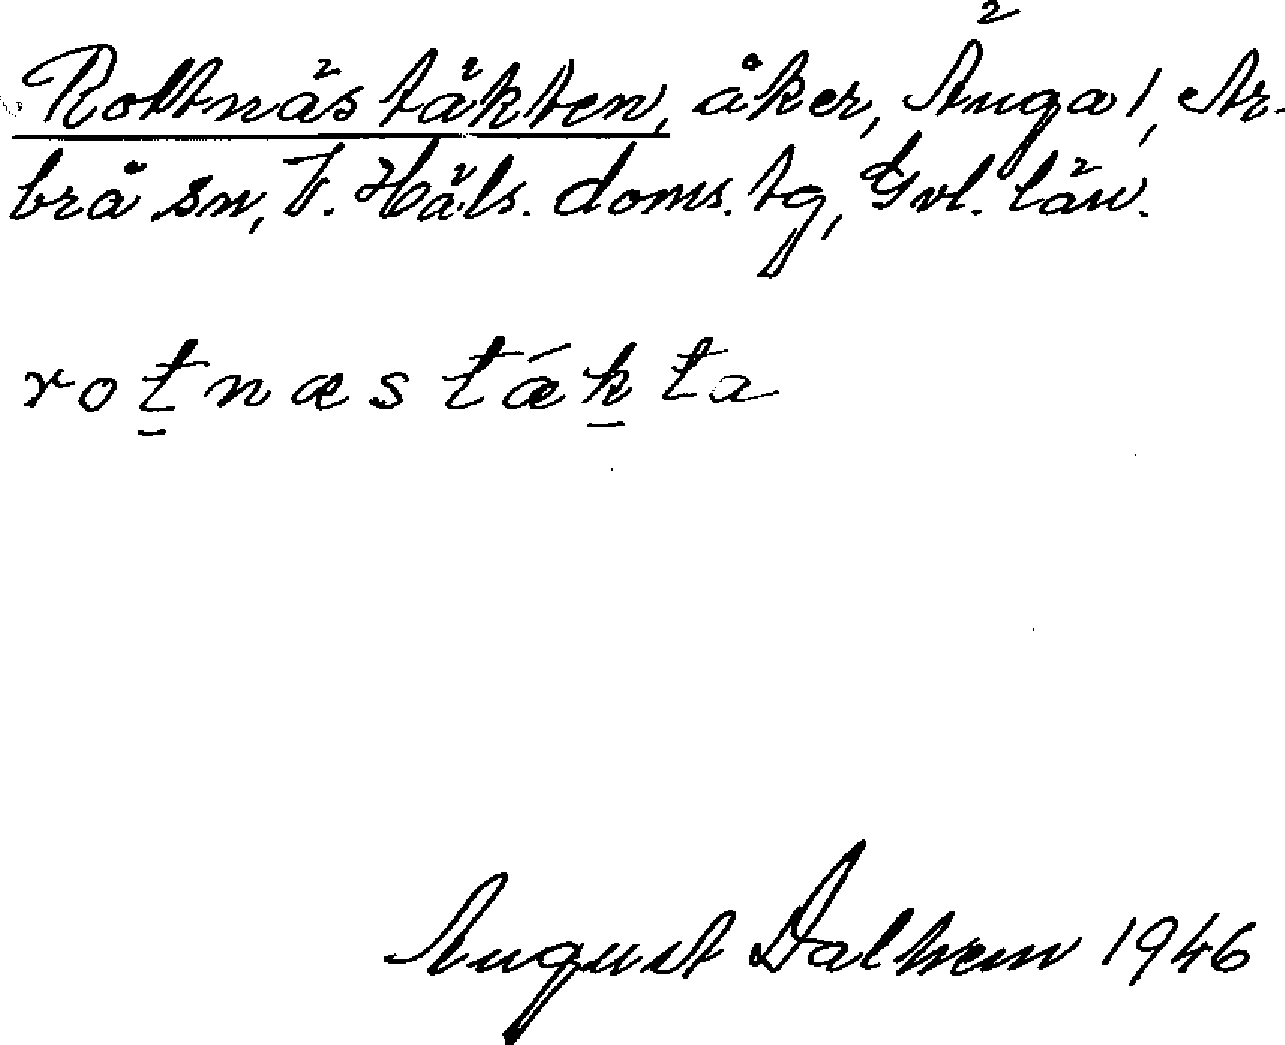 Rottnästäkten, åker, Änga 1, Ar-
brå sn, V. Häls. doms. tg, Gvl. län.
rot̲næstǽk̲ta
August Dalhem 1946